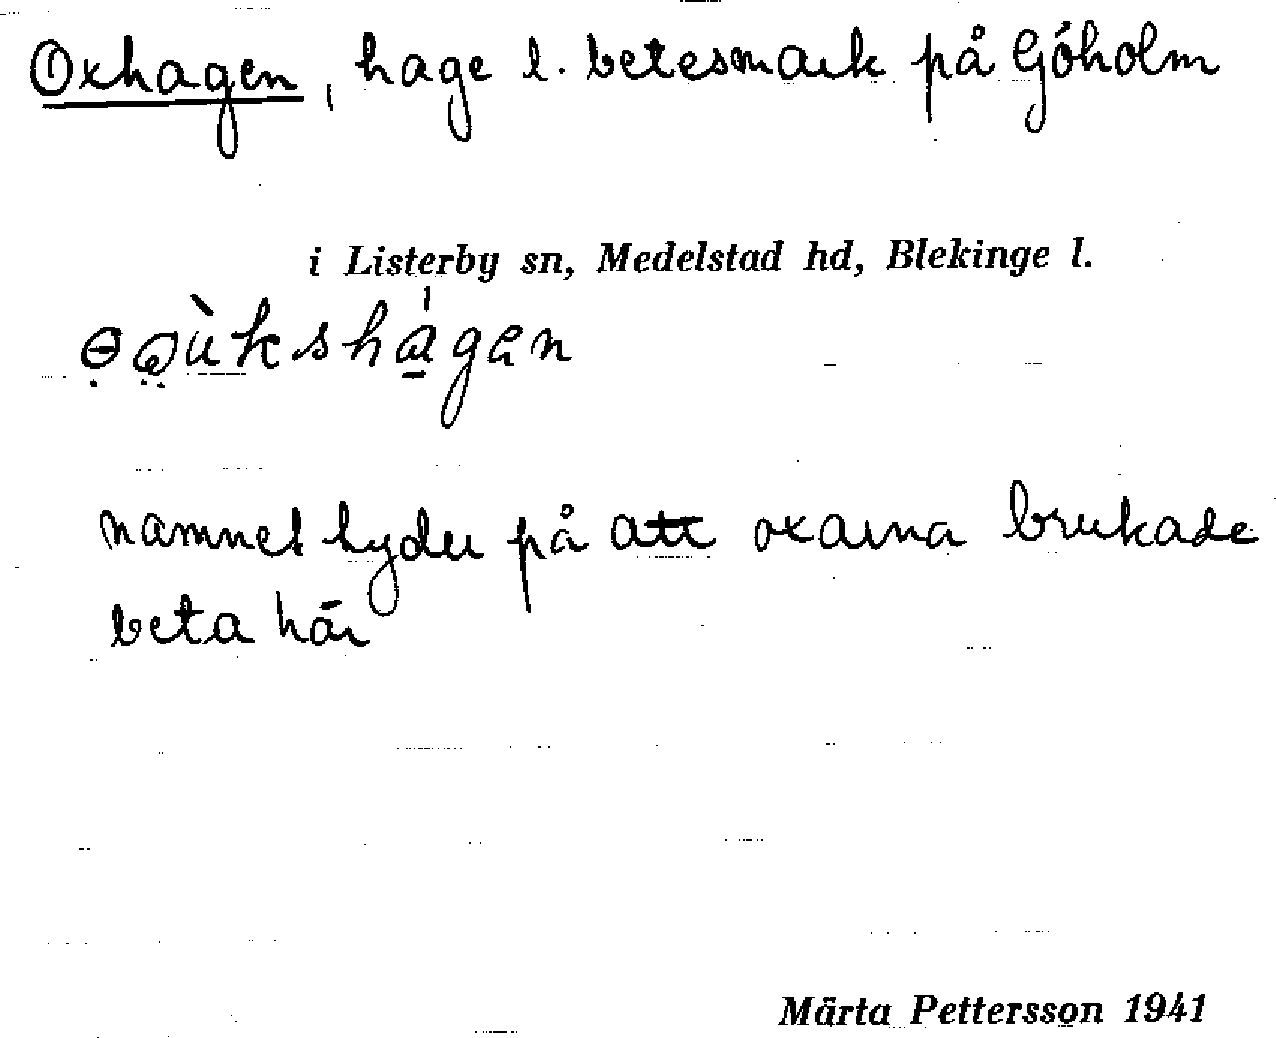 Oxhagen, hage l. betesmark på Göholm
i Listerby sn, Medelstad hd, Blekinge l.
namnet tyder på att oxarna brukade
beta här
Märta Pettersson 1941